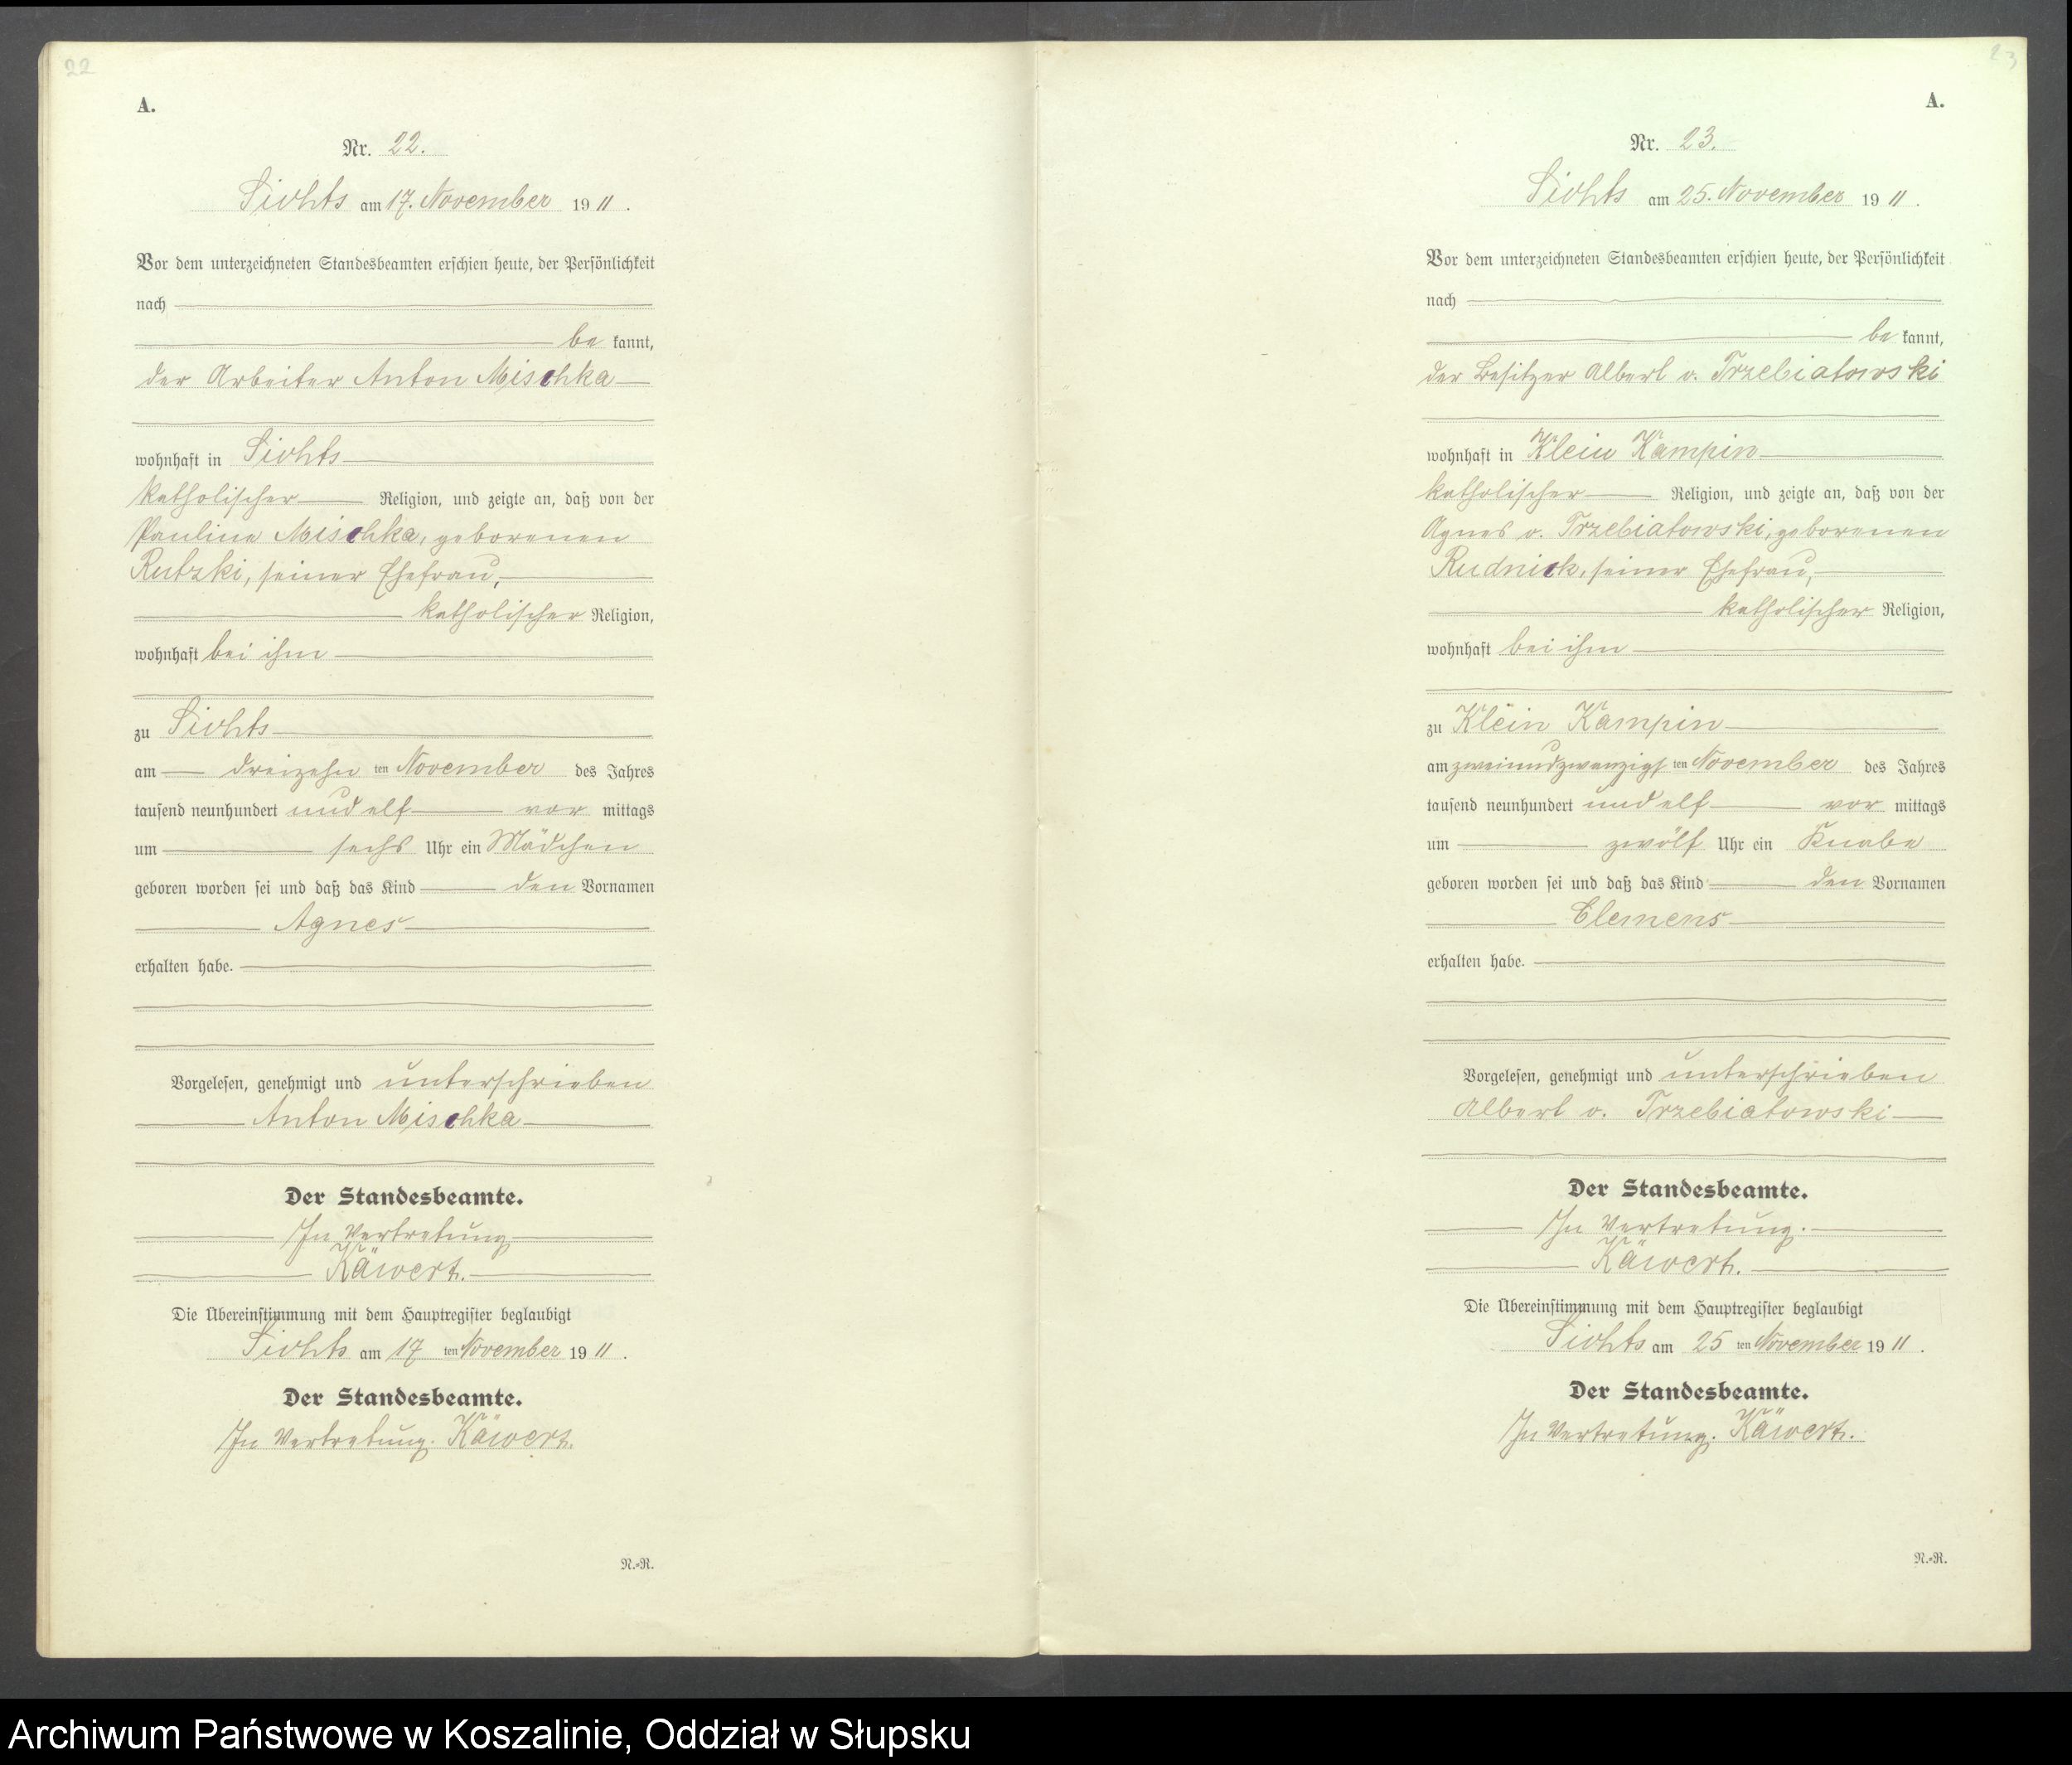 22
A.
Nr. 22.
Sichts am 17. November 1911.
Vor dem unterzeichneten Standesbeamten erschien heute, der Persönlichkeit
nach
be kannt,
der Arbeiter Anton Mischka
wohnhaft in Sichts
katholischer Religion, und zeigte an, daß von der
Pauline Mischka, geborenen
Rutzki, seiner Ehefrau,
katholischer Religion,
wohnhaft bei ihm
zu Sichts
am dreizehn ten November des Jahres
tausend neunhundert und elf vor mittags
um sechs Uhr ein Mädchen
geboren worden sei und daß das Kind den Vornamen
Agnes
erhalten habe.
Vorgelesen, genehmigt und unterschrieben
Anton Mischka
Der Standesbeamte.
In Vertretung
Käwert.
Die Übereinstimmung mit dem Hauptregister beglaubigt
Sichts am 17 ten November 1911.
Der Standesbeamte.
In Vertretung. Käwert.
N.-R.
23
A.
Nr. 23.
Sichts am 25. November 1911.
Vor dem unterzeichneten Standesbeamten erschien heute, der Persönlichkeit
nach
be kannt,
der Besitzer Albert v. Trzebiatowski
wohnhaft in Klein Kampin
katholischer Religion, und zeigte an, daß von der
Agnes v. Trzebiatowski, geborenen
Rudnick, seiner Ehefrau,
katholischer Religion,
wohnhaft bei ihm
zu Klein Kampin
am zweiundzwanzigs ten November des Jahres
tausend neunhundert und elf vor mittags
um zwölf Uhr ein Knabe
geboren worden sei und daß das Kind den Vornamen
Clemens
erhalten habe.
Vorgelesen, genehmigt und unterschrieben
Albert v. Trzebiatowski
Der Standesbeamte.
In Vertretung.
Käwert.
Die Übereinstimmung mit dem Hauptregister beglaubigt
Sichts am 25 ten November 1911.
Der Standesbeamte.
In Vertretung. Käwert.
N.-R.
Archiwum Państwowe w Koszalinie, Oddział w Słupsku